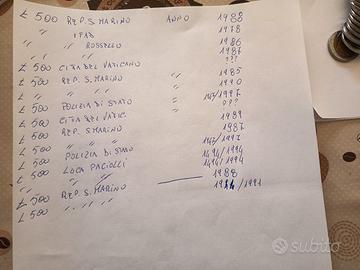 £ 500 REP. S. MARINO ANNO 1988
" " IFAD " 1978
" " ROSSELLO " 1986
" " " 1987
£ 500 CITTA DEL VATICANO " ???
£ 500 REP. S. MARINO " 1985
" " " " " 1990
£ 500 POLIZIA DI STATO " 1997
£ 500 CITTA DEL VATIC. " ???
£ 500 REP. S MARINO 1989
£ 500 " " " 1987
£ 500 POLIZIA DI STATO 1997
£ 500 LUCA PACIOLLI 1494/1994
£ 500 " " 1494/1994
" REP. S. MARINO 1988
£ 500 " " " 1991
subito